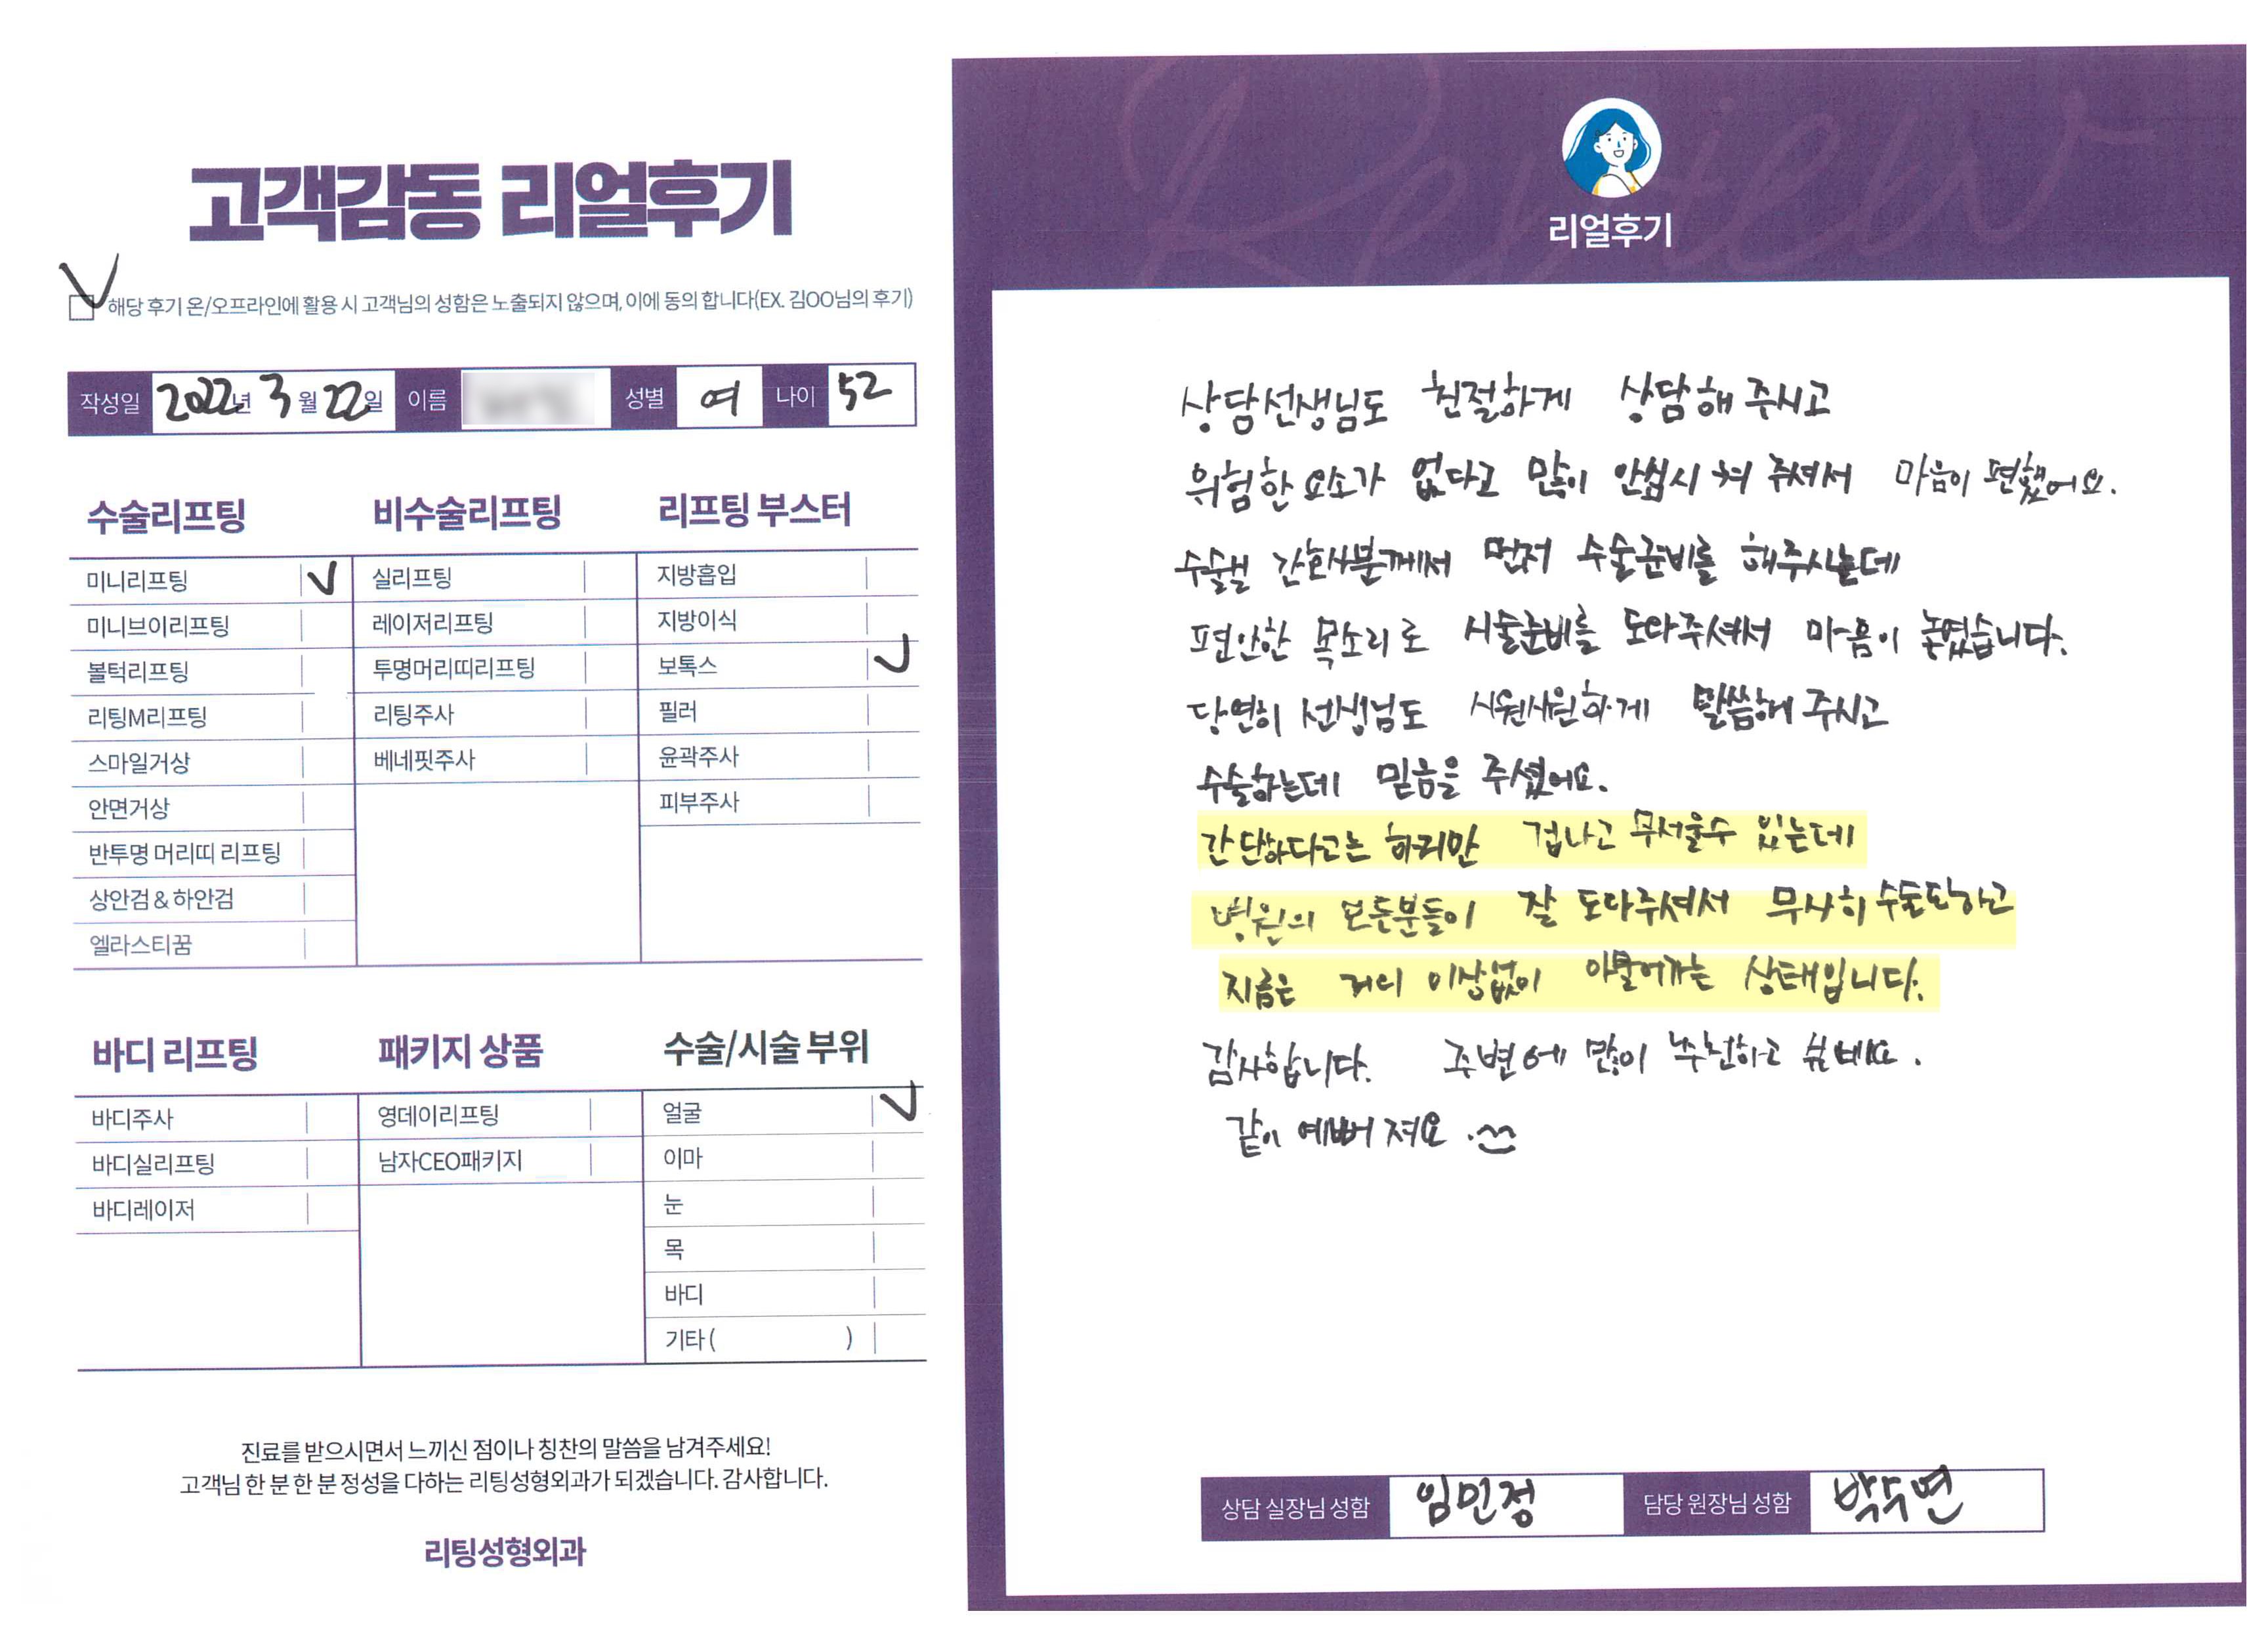 고객감동 리얼후기
해당 후기 온/오프라인에 활용 시 고객님의 성함은 노출되지 않으며, 이에 동의 합니다(EX. 김OO님의 후기)
작성일 2022년 3월 22일 이름 성별 여 나이 52
수술리프팅
미니리프팅
미니브이리프팅
볼턱리프팅
리팅M리프팅
스마일거상
안면거상
반투명 머리띠 리프팅
상안검 & 하안검
엘라스티꿈
비수술리프팅
실리프팅
레이저리프팅
투명머리띠리프팅
리팅주사
베네핏주사
리프팅 부스터
지방흡입
지방이식
보톡스
필러
윤곽주사
피부주사
바디 리프팅
바디주사
바디실리프팅
바디레이저
패키지 상품
영데이리프팅
남자CEO패키지
수술/시술 부위
얼굴
이마
눈
목
바디
기타 ( )
진료를 받으시면서 느끼신 점이나 칭찬의 말씀을 남겨주세요!
고객님 한 분 한 분 정성을 다하는 리팅성형외과가 되겠습니다. 감사합니다.
리팅성형외과
Review
리얼후기
상담선생님도 친절하게 상담해 주시고
위험한 요소가 없다고 많이 안심시켜 주셔서 마음이 편했어요.
수술실 간호사분께서 먼저 수술준비를 해주시는데
편안한 목소리로 시술준비를 도와주셔서 마음이 놓였습니다.
당연히 선생님도 시원시원하게 말씀해 주시고
수술하는데 믿음을 주셨어요.
간단하다고는 하지만 겁나고 무서울수 있는데
병원의 모든분들이 잘 도와주셔서 무사히 수술도하고
지금은 거의 이상없이 아물어가는 상태입니다.
감사합니다. 주변에 많이 추천하고 싶네요.
같이 예뻐 져요 ^^
상담 실장님 성함 임민정 담당 원장님 성함 박수면